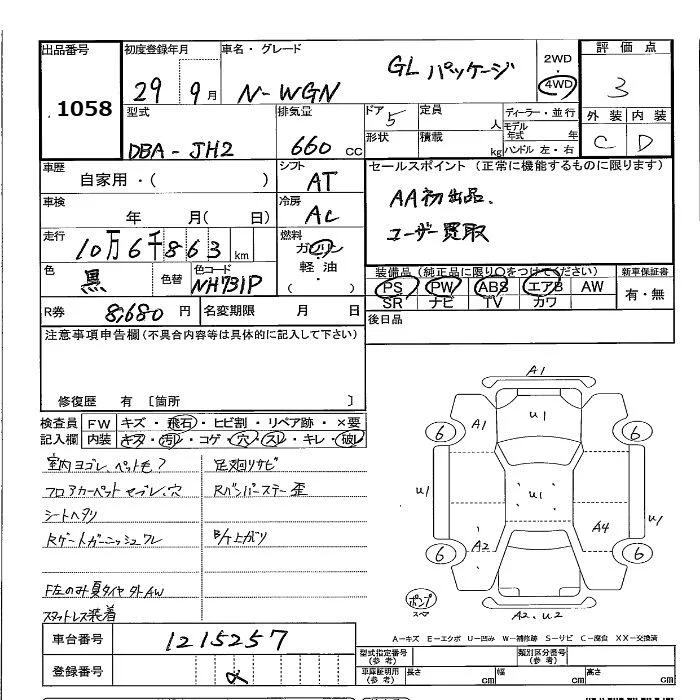 出品番号 初度登録年月 車名・グレード 2WD 評価点
1058 29 9月 N-WGN GL パッケージ 4WD 3
型式 排気量 ドア 定員 ディーラー・並行 外装 内装
DBA-JH2 660cc 5 人 モデル年式 年 C D
形状 積載 kg ハンドル 左・右
車歴 シフト セールスポイント(正常に機能するものに限ります)
自家用・( ) AT AA初出品、
車検 冷房 ユーザー買取
年 月( 日) AC
走行 燃料
10万6千863km ガソリン
軽・油
( )
色 色替 色コード 装備品(純正品に限り○をつけてください) 新車保証書
黒 NH731P PS PW ABS エアB AW 有・無
SR ナビ TV カワ
R券 8,680円 名変期限 月 日 後日品
注意事項申告欄(不具合内容等は具体的に記入して下さい)
修復歴 有 〔箇所 〕
検査員 FW キズ・飛石・ヒビ割・リペア跡・×要
記入欄 内装 キズ・汚レ・コゲ・穴・スレ・キレ・破レ
室内ヨゴレ、ペット毛? 足廻リサビ
フロアカーペットヨゴレ、穴 Rバンパーステー歪
シートヘタリ
Rゲートガーニッシュワレ B/T上がり
F左のみ夏タイヤ 外AW
スタットレス装着
A1
A1 U1
6 6
U1 U1 U1
A2 A4
6 6
ポンプ
スペア
A2、U2
A-キズ E-エクボ U-凹み W-補修跡 S-サビ C-腐食 XX-交換済
車台番号 1215257 型式指定番号(参考) 類別区分番号(参考)
登録番号 車庫証明用(参考) 長さ cm 幅 cm 高さ cm